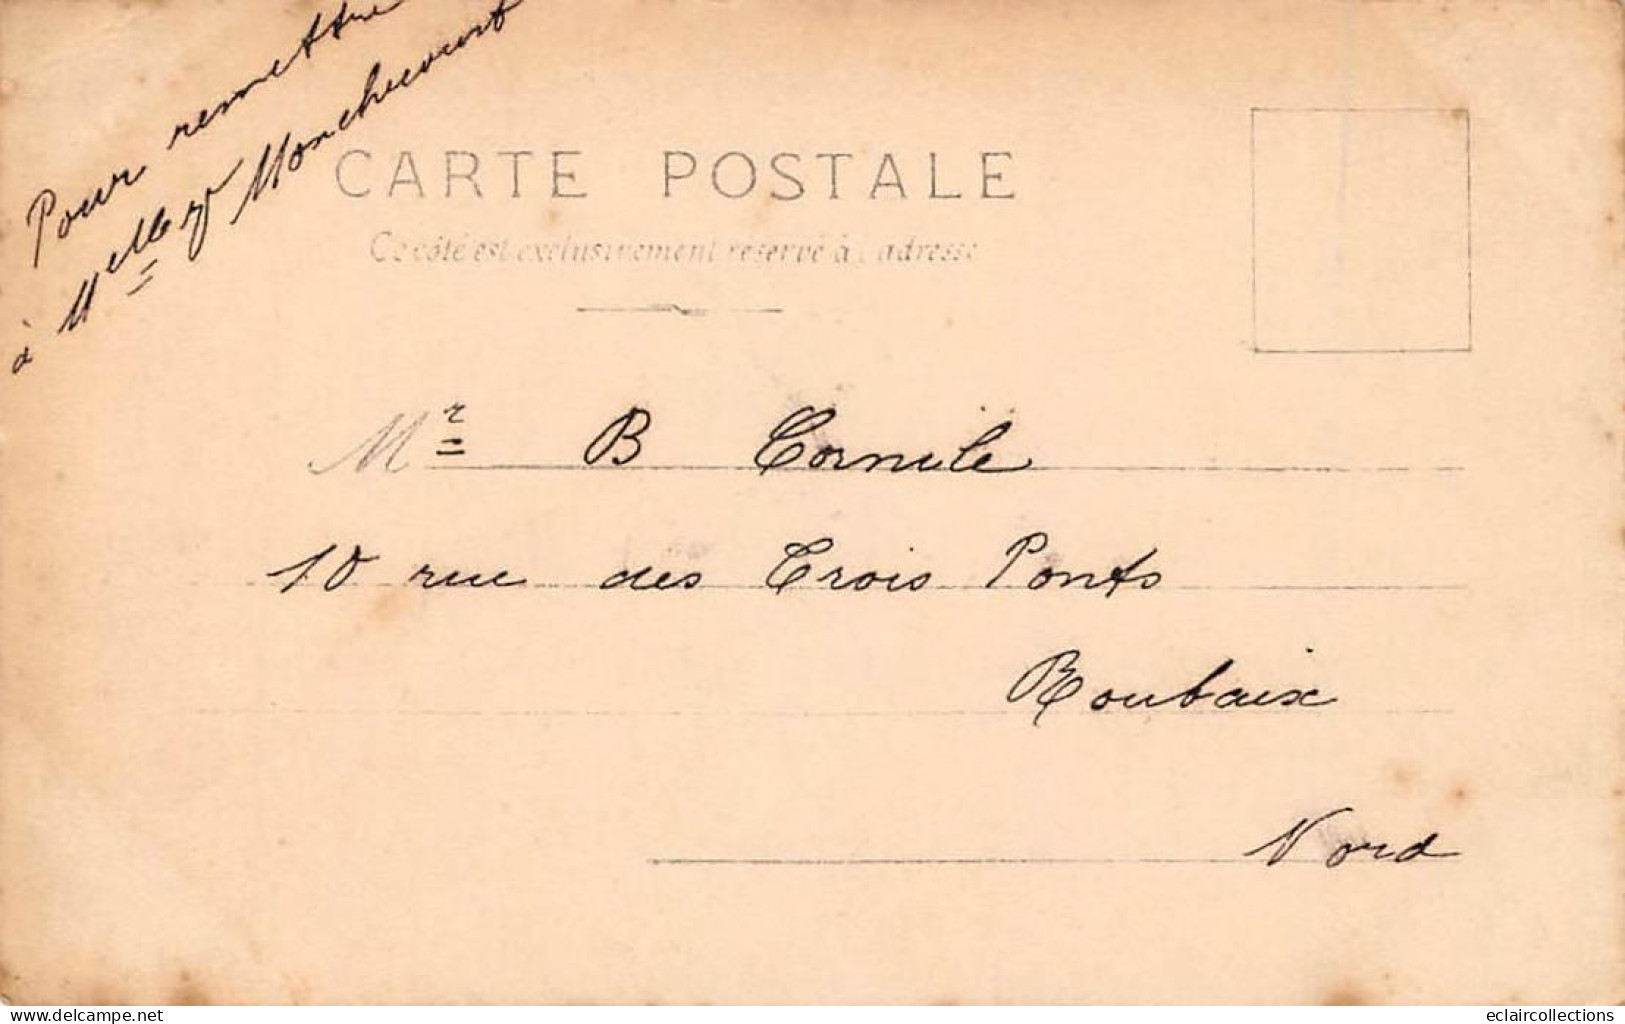 Pour remettre
à Melle Y Monchecourt
CARTE POSTALE
Ce côté est exclusivement réservé à l'adresse
Mr B Cornile
10 rue des Trois Ponts
Roubaix
Nord
eclaircollections